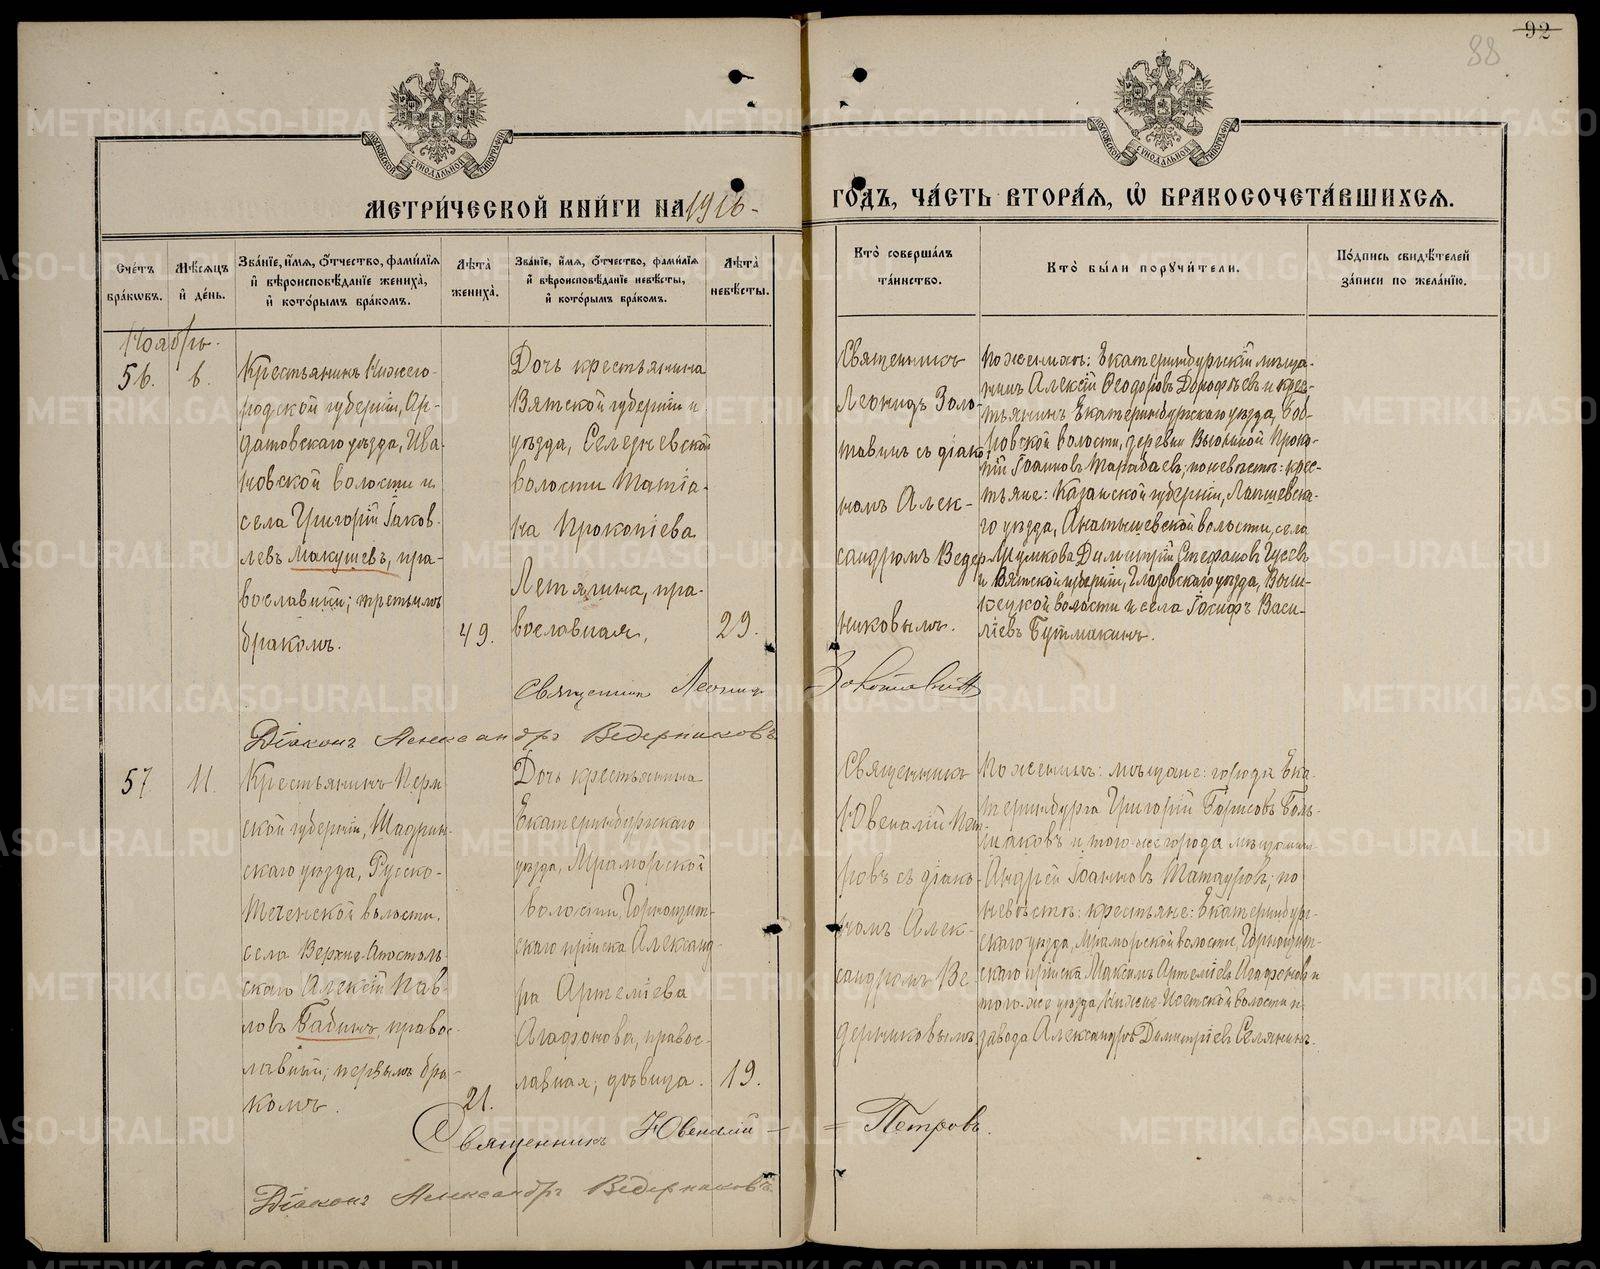 92
88
МЕТРИ́ЧЕСКОЙ КНИ́ГИ НА 1916 ГО́ДЪ, ЧА́СТЬ ВТОРА́Я, Ѡ҆ БРАКОСОЧЕТА́ВШИХСЯ.
Сче́тъ бра́кѡвъ.
Мѣ́сяцъ и҆ де́нь.
Зва́нїе, и҆́мя, ѻ҆́тчество, фами́лїя
и҆ вѣроисповѣ́данїе жениха̀,
и҆ кото́рымъ бра́комъ.
Лѣта̀ жениха̀.
Зва́нїе, и҆́мя, ѻ҆́тчество, фами́лїя
и҆ вѣроисповѣ́данїе невѣ́сты,
и҆ кото́рымъ бра́комъ.
Лѣта̀ невѣ́сты.
Кто̀ соверша́лъ
та́инство.
Кто̀ бы́ли поручи́тели.
По́дпись свидѣ́телей
за́писи по жела́нїю.
Ноябрь.
56.
6.
Крестьянинъ Нижего-
родской губерніи, Ар-
датовскаго уѣзда, Ива-
новской волости и
села Григорій Іаков-
левъ Макушевъ, пра-
вославный; третьимъ
бракомъ.
49.
Дочь крестьянина
Вятской губерніи и
уѣзда, Селезневской
волости Татіа-
на Прокопіева
Летягина, пра-
вославная,
29.
Священникъ
Леонидъ Золо-
тавинъ съ діако-
номъ Алек-
сандромъ Ведер-
никовымъ.
По женихѣ: Екатеринбургскій мѣща-
нинъ Алексій Ѳеодоровъ Дорофѣевъ и крес-
тьянинъ Екатеринбургскаго уѣзда,
волости, деревни Проко-
пій Іоанновъ Тарабаевъ; по невѣстѣ: крес-
тьяне: Казанской губерніи, Лаишевска-
го уѣзда, Анатышевской волости, села
Димитрій Стефановъ Гусевъ
и Вятской губерніи, Глазовскаго уѣзда,
волости и села Іосифъ Васи-
ліевъ
Священникъ Леонид Золотавинъ
Діаконъ Александръ Ведерниковъ
57
11.
Крестьянинъ Перм
ской губерніи, Шадрин-
скаго уѣзда, Русско-
Теченской волости,
села Верхне-Апостоль-
скаго Алексій Пав-
ловъ Бабинъ, право-
славный; первымъ бра-
комъ.
21.
Дочь крестьянина
Екатеринбургскаго
уѣзда, Мраморской
волости, Горнощит-
скаго пріиска Александ-
ра Артеміева
Агафонова, правос-
лавная; дѣвица.
19.
Священникъ
Ювеналій Пет-
ровъ съ діако-
номъ Алек-
сандромъ Ве-
дерниковымъ
По женихѣ: мѣщане: города Ека-
теринбурга Григорій Борисовъ Боль-
шаковъ и того-же города мѣщанин
Андрей Іоанновъ Татауровъ; по
невѣстѣ: крестьяне: Екатеринбург-
скаго уѣзда, Мраморской волости, Горнощит-
скаго пріиска Максимъ Артеміевъ Агафоновъ и
того-же уѣзда, Нижне-Исетской волости и
завода Александръ Димитріевъ Селянинъ.
Священникъ Ювеналій = Петровъ.
Діаконъ Александръ Ведерниковъ